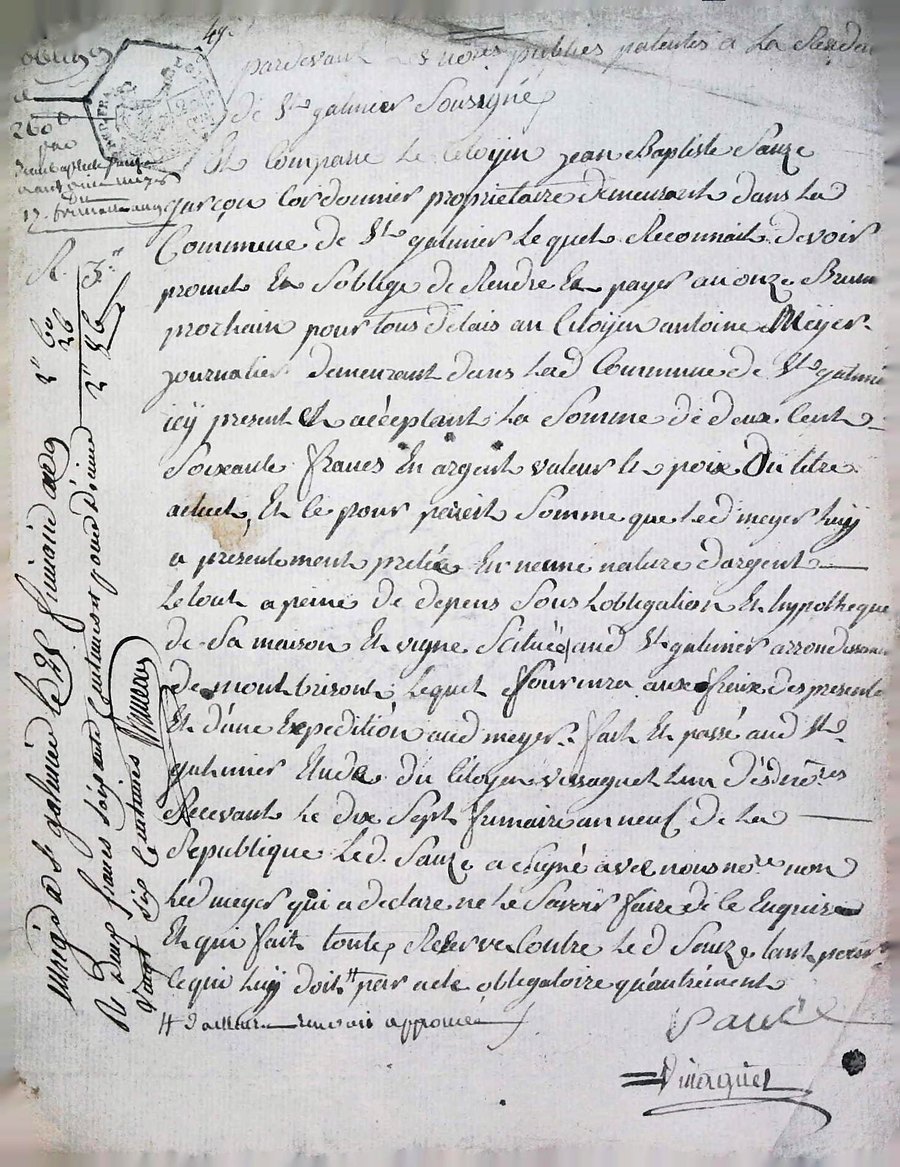 49e
pardevant Les nores publics patentés a La Residen
de St galmier Soussigné
260 #
par
Jean baptiste Sauze
a antoine meyer
du
17. frimaire an 9
Et Comparu Le Citoyen jean Baptiste Sauze
garçon Cordonnier propriétaire demeurant dans Lad
Commune de St galmier Lequel Reconnait devoir
promet Et Soblige de Rendre Et payer au onze Brum
prochain pour tous delais au Citoyen antoine Meyer
journalier demeurant dans Lad Commune de St galmie
icy present Et acceptant La Somme de deux Cent
Soixante francs En argent valeur le poix Du titre
actuel, Et ce pour pareil Somme que Led meyer Luy
a presentement pretée En meme nature dargent
Le tout a peine de depens Sous Lobligation Et hypotheque
de Sa maison Et vigne Scituée aud St galmier arrondissem
de montbrison Lequel fournira aux fraix des presente
Et d'une Expedition aud meyer. fait Et passé aud St
galmier Etude du Citoyen vissaguet Lun desd nores
Recevant Le dix Sept frimaire an neuf de La
Republique Led. Sauze a signé avec nous nore non
Led meyer qui a declaré ne Le Savoir faire de ce Enquis
Et qui fait toute Reserve Contre Led Sauze tant pour
ce qui Luy doit # par acte obligatoire qu'autrement
# d'ailleurs renvoi approuvé
Sauze
Vissaguet
Enregé a St galmier le 25 frimaire an 9
R. Deux francs soixante Centimes et pour dixieme
vingt six Centimes
R.
2" 60
26
3"
2" 86